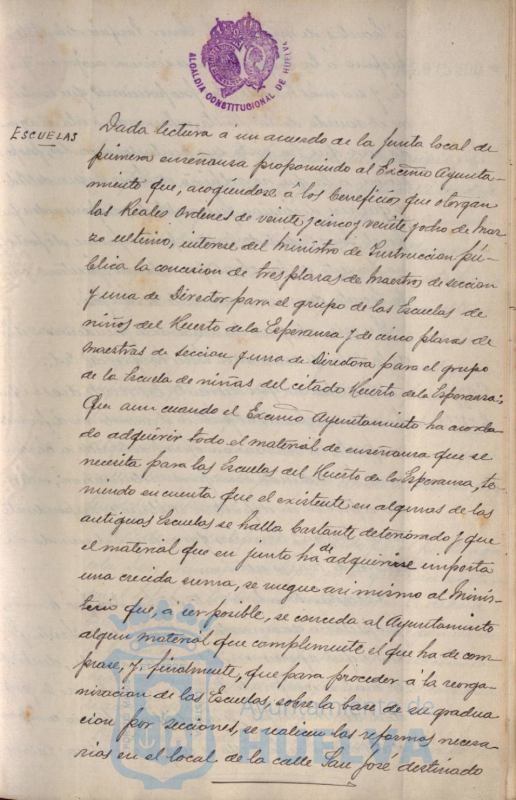 ALCALDÍA CONSTITUCIONAL DE HUELVA
ESCUELAS
Dada lectura á un acuerdo de la Junta local de
primera enseñanza proponiendo al Excmo Ayunta-
miento que, acogiéndose á los beneficios que otorgan
las Reales Ordenes de veinte y cinco y veinte y ocho de Mar-
zo ultimo, interese del Ministro de Instruccion pú-
blica la concesion de tres plazas de Maestros de seccion
y una de Director para el grupo de las Escuelas de
niños del Huerto de la Esperanza y de cinco plazas de
Maestras de seccion y una de Directora para el grupo
de la Escuela de niñas del citado Huerto de la Esperanza:
Que aun cuando el Excmo Ayuntamiento ha acorda-
do adquirir todo el material de enseñanza que se
necesita para las Escuelas del Huerto de la Esperanza, te-
niendo en cuenta que el existente en algunas de las
antiguas Escuelas se halla bastante deteriorado y que
el material que en junto ha de adquirirse importa
una crecida suma, se ruegue asi mismo al Minis-
terio que, á ser posible, se conceda al Ayuntamiento
algun material que complemente el que ha de com-
prarse, y, finalmente, que para proceder á la reorga-
nizacion de las Escuelas, sobre la base de su gradua
cion por secciones, se realicen las reformas necesa-
rias en el local de la calle San José destinado
Ayuntamiento de
HUELVA